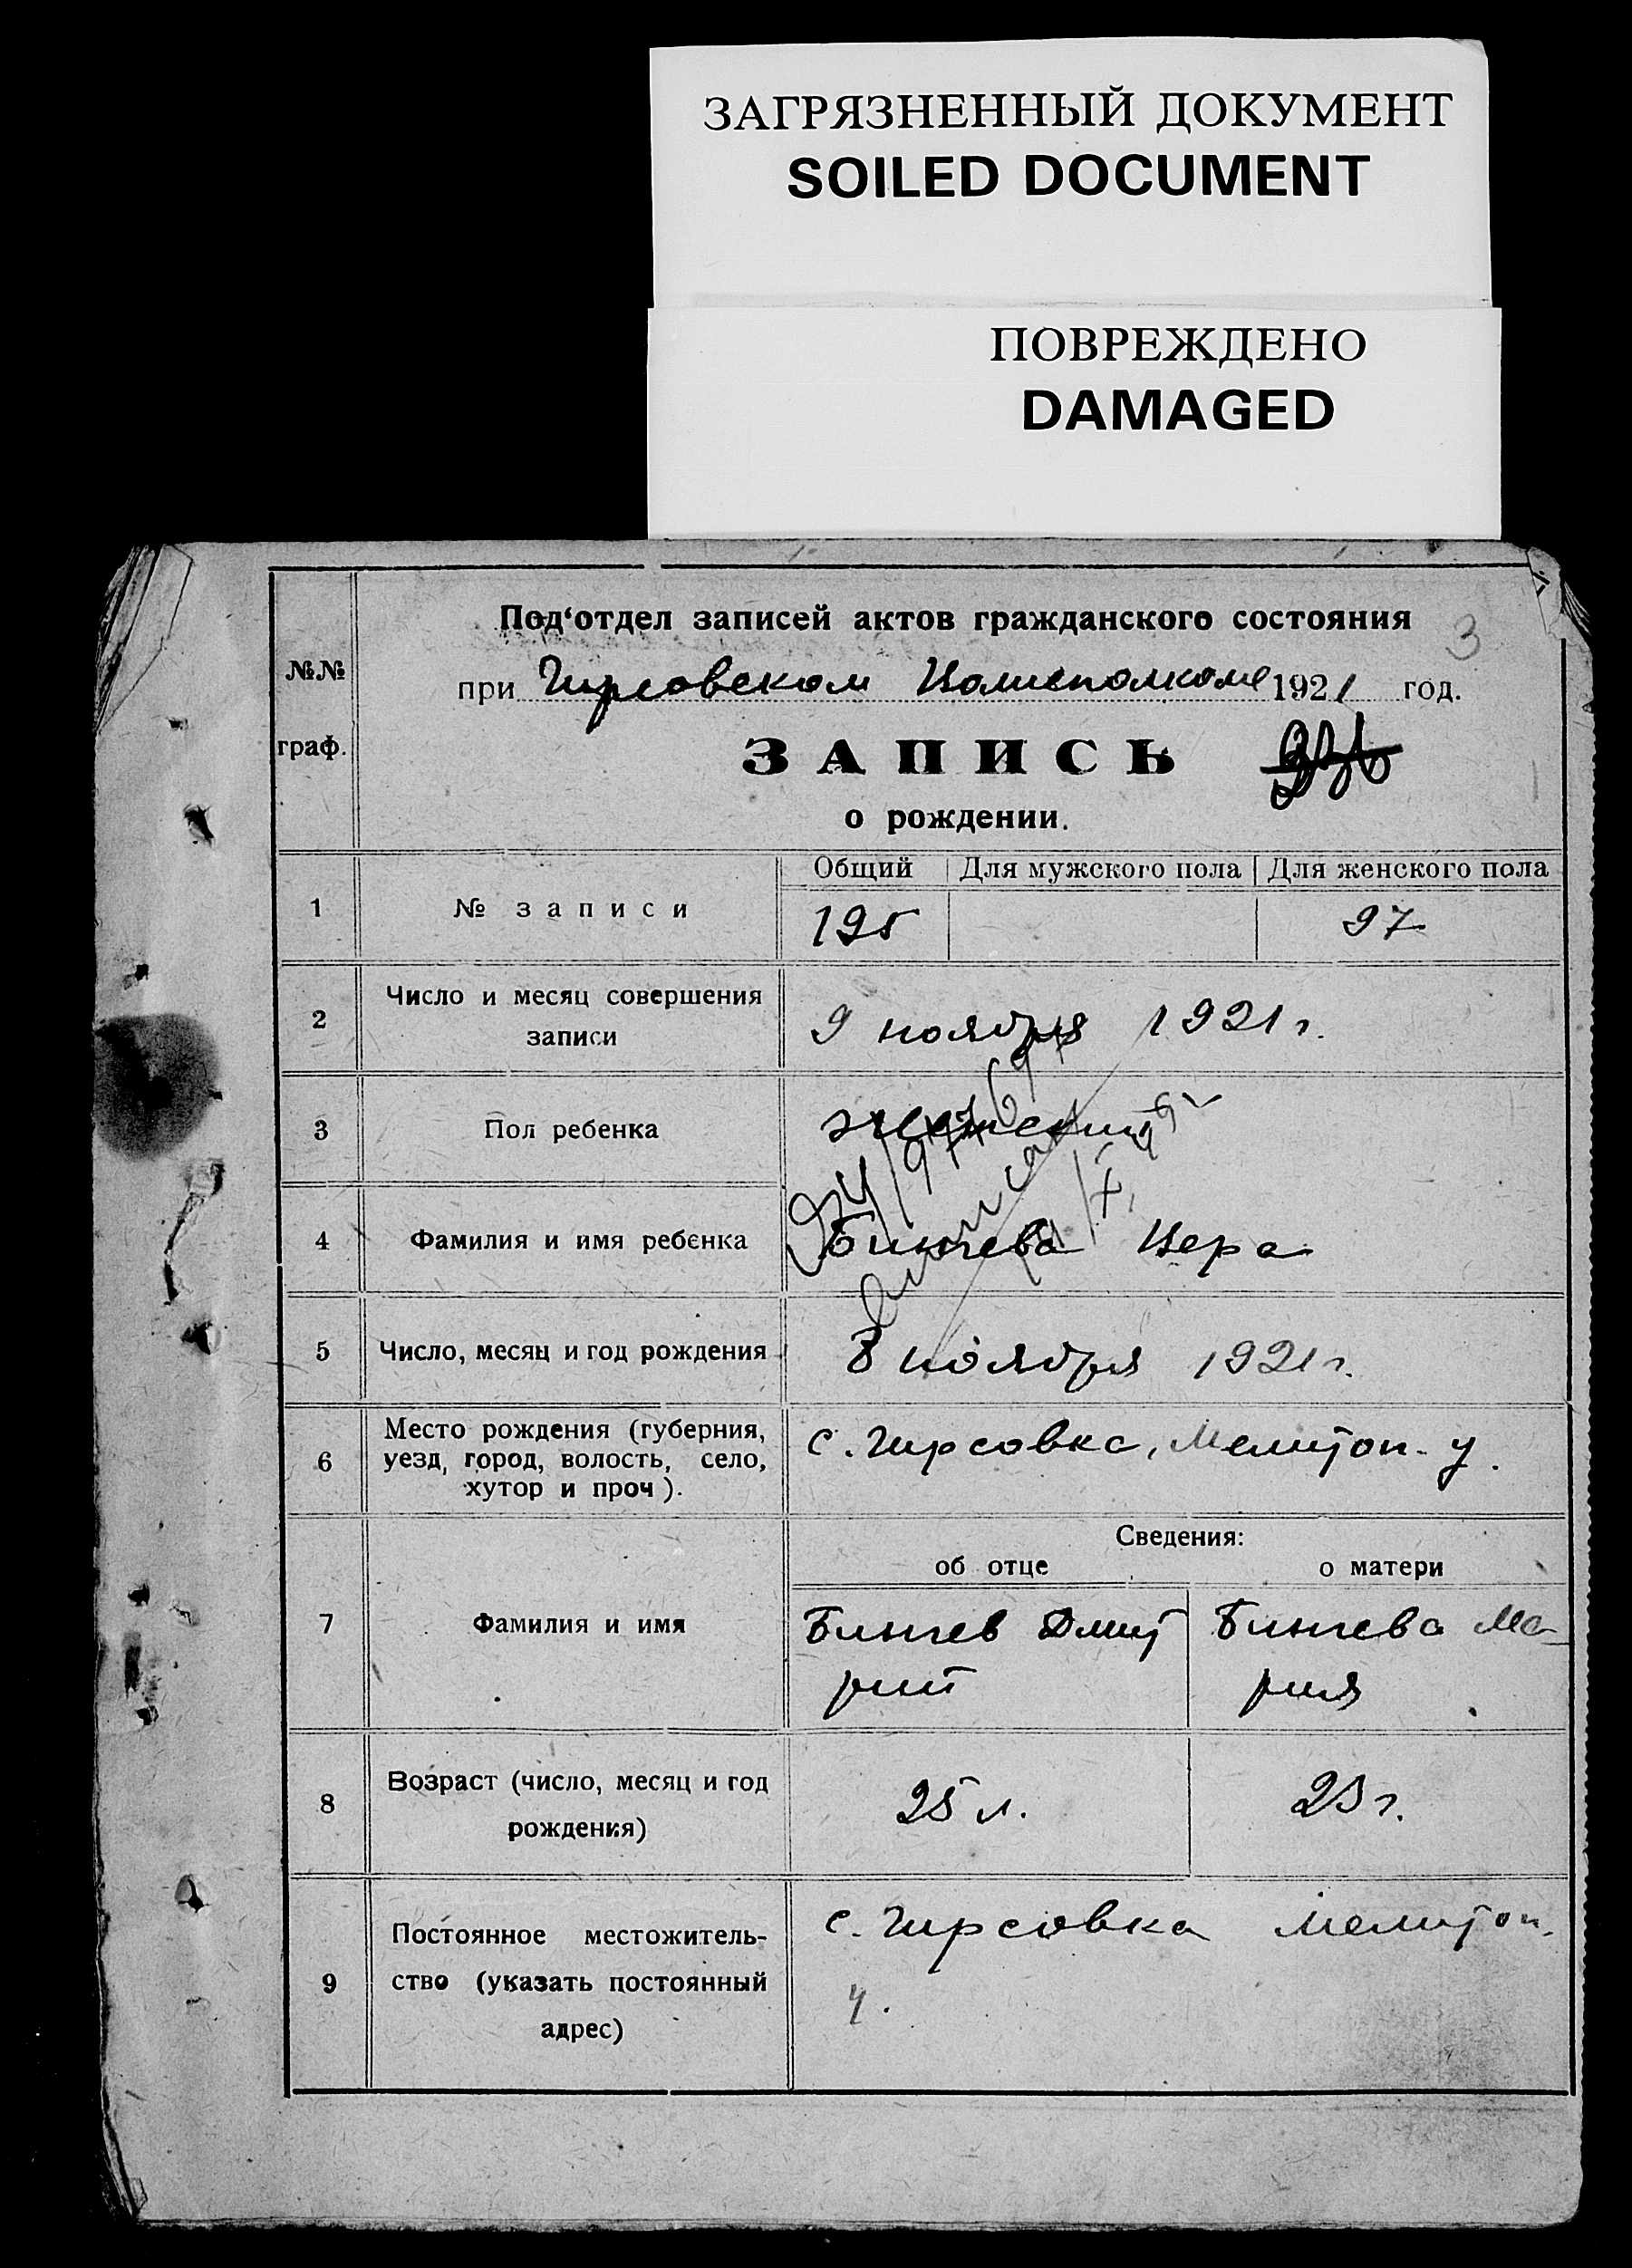 ЗАГРЯЗНЕННЫЙ ДОКУМЕНТ
SOILED DOCUMENT
ПОВРЕЖДЕНО
DAMAGED
3
№№
граф.
Под'отдел записей актов гражданского состояния
при Гирсовском Волисполкоме 1921 год.
ЗАПИСЬ
о рождении.
Общий Для мужского пола Для женского пола
1 № записи 195 97
2 Число и месяц совершения
записи
9 ноября 1921 г.
3 Пол ребенка женский
4 Фамилия и имя ребенка Бингева Вера
5 Число, месяц и год рождения 8 ноября 1921 г.
6 Место рождения (губерния,
уезд, город, волость, село,
хутор и проч).
с. Гирсовка, Мелитоп. у.
Сведения:
об отце о матери
7 Фамилия и имя
Бингев Дмит
рий
Бингева Ма-
рия
8 Возраст (число, месяц и год
рождения)
25 л. 23 г.
9 Постоянное местожитель-
ство (указать постоянный
адрес)
с. Гирсовка Мелитоп.
у.